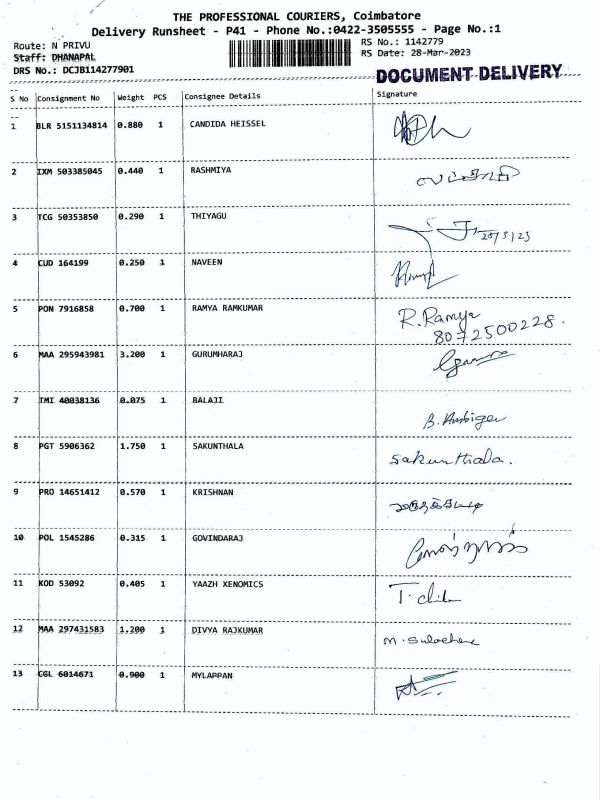 THE PROFESSIONAL COURIERS, Coimbatore
Delivery Runsheet - P41 - Phone No.:0422-3505555 - Page No.:1
Route: N PRIVU
RS No.: 1142779
Staff: DHANAPAL
RS Date: 28-Mar-2023
DRS No.: DCJB114277901
DOCUMENT DELIVERY
S No Consignment No Weight PCS Consignee Details Signature
1 BLR 5151134814 0.880 1 CANDIDA HEISSEL
2 IXM 503385045 0.440 1 RASHMIYA
3 TCG 50353850 0.290 1 THIYAGU 28/3/23
4 CUD 164199 0.250 1 NAVEEN
5 PON 7916858 0.700 1 RAMYA RAMKUMAR R.Ramya
8072500228.
6 MAA 295943981 3.200 1 GURUMHARAJ
7 TMI 40038136 0.075 1 BALAJI
8 PGT 5906362 1.750 1 SAKUNTHALA Sakunthala.
9 PRO 14651412 0.570 1 KRISHNAN
10 POL 1545286 0.315 1 GOVINDARAJ
11 KOD 53092 0.405 1 YAAZH XENOMICS
12 MAA 297431583 1.200 1 DIVYA RAJKUMAR
13 CGL 6014671 0.900 1 MYLAPPAN